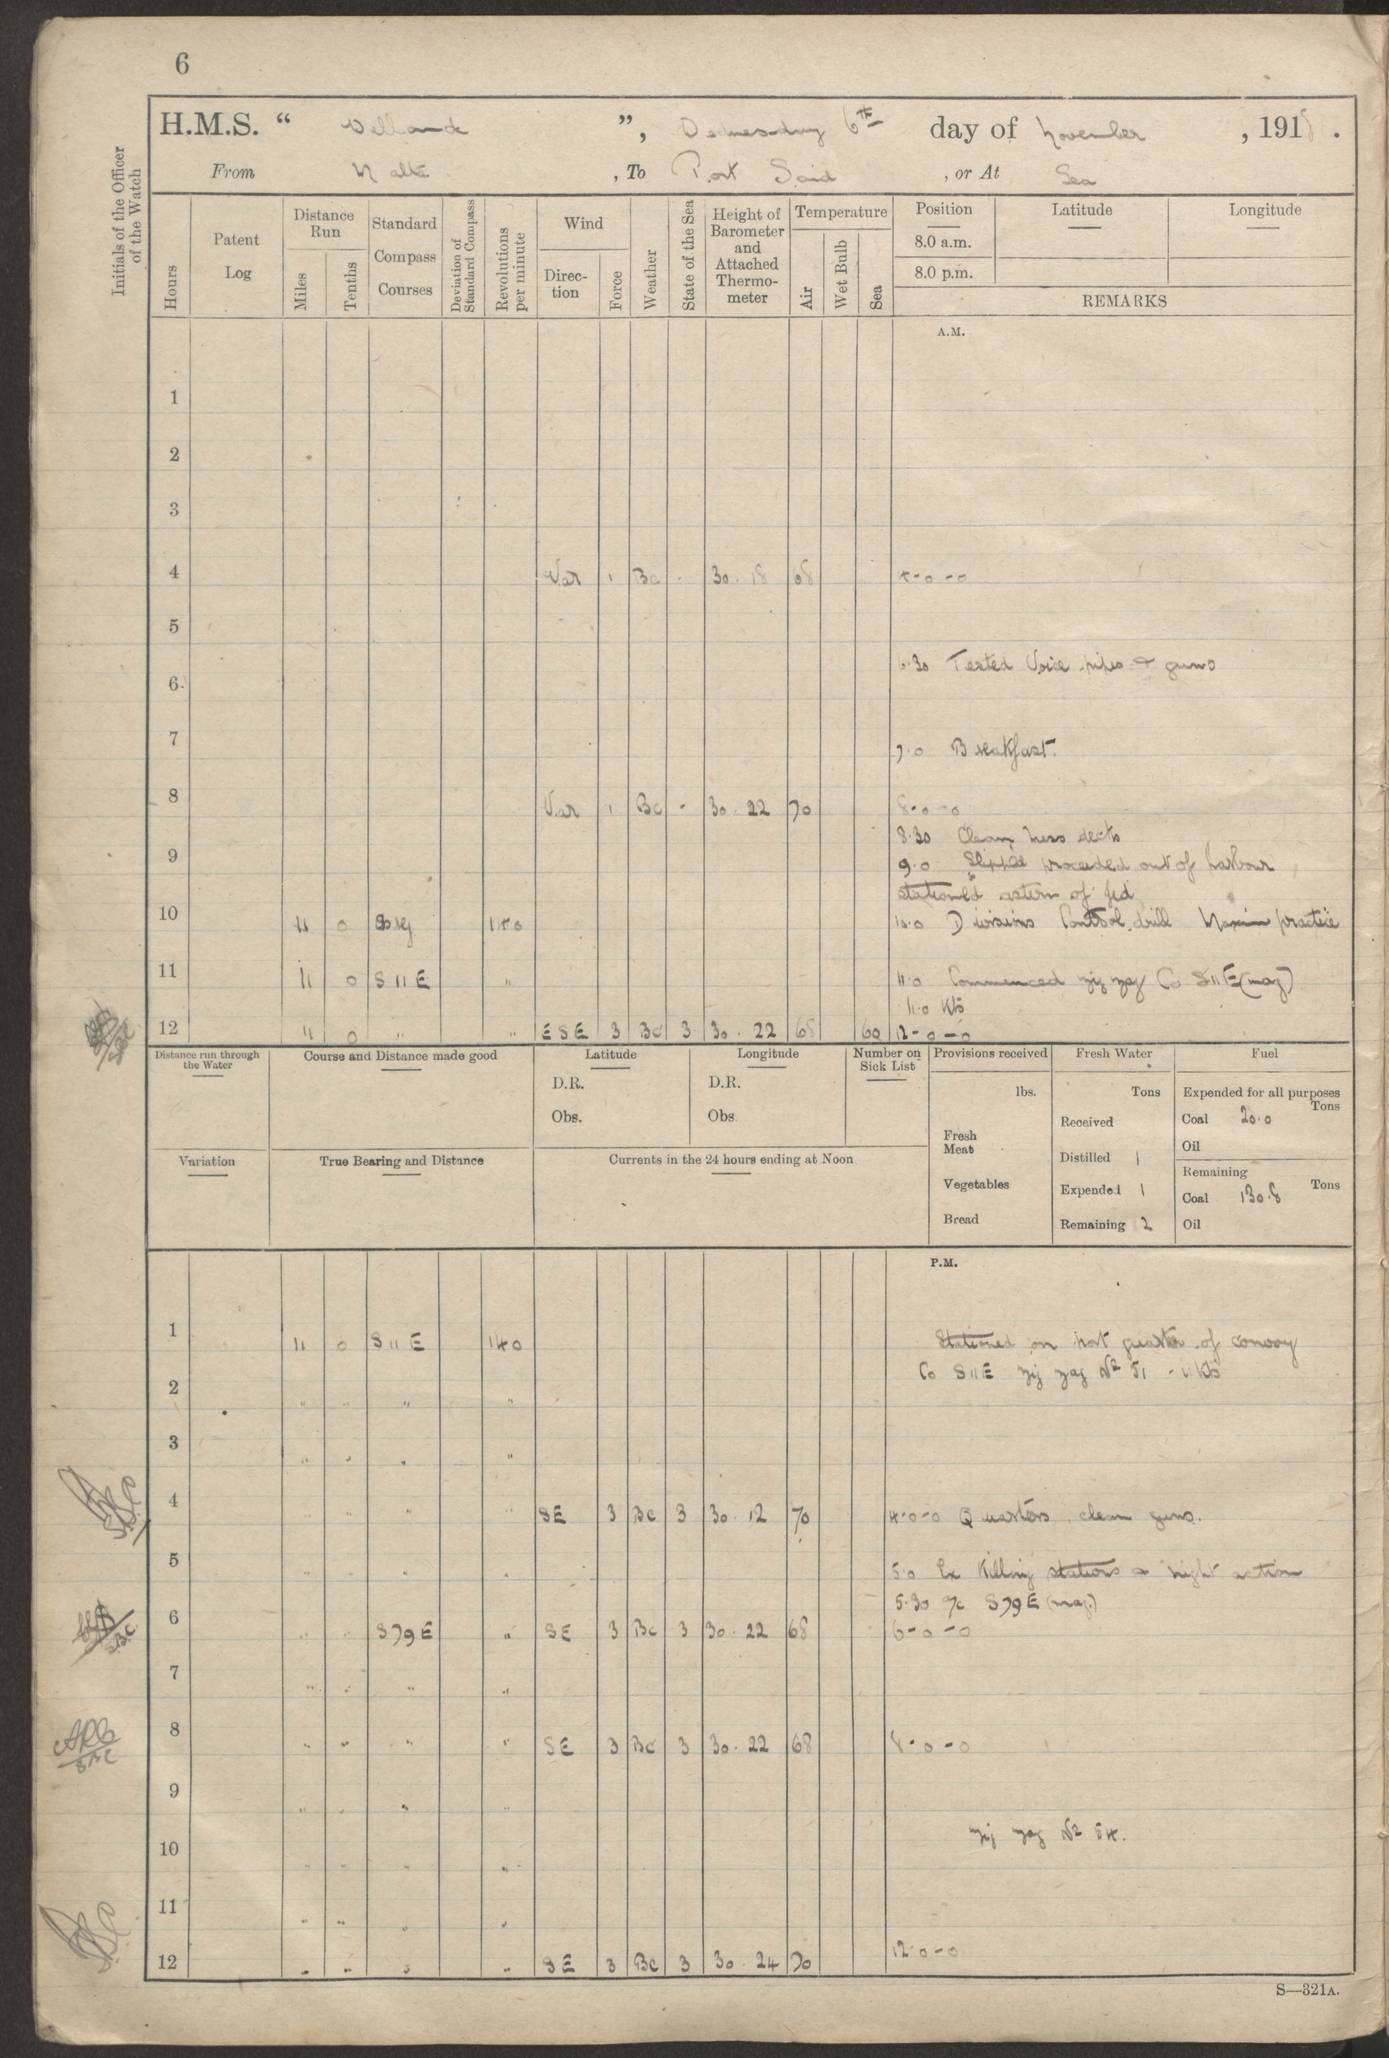 6
H.M.S. “ ”, Wednesday 6th day of November , 1918 .
From Malta , To Port Said , or At Sea
Initials of the Officer of the Watch
Hours
Patent Log
Distance Run
Miles
Tenths
Standard Compass Courses
Deviation of Standard Compass
Revolutions per minute
Wind
Direc-tion
Force
Weather
State of the Sea
Height of Barometer and Attached Thermo-meter
Temperature
Air
Wet Bulb
Sea
Position
8.0 a.m.
8.0 p.m.
Latitude
Longitude
REMARKS
A.M.
1
2
3
4 Var 1 Bc - 30.18 68 4-0-0
5
6.30 Tested Voice pipes & guns
6
7
7.0 Breakfast.
8 Var 1 Bc - 30.22 70 8-0-0
8.30 Clean mess decks
9
9.0 Slipped proceeded out of harbour
stationed astern of
10 11 0 140 10.0 Divisions Control drill practice
11 11 0 S11E " 11.0 Commenced zig zag Co S11E (mag)
11.0 Kts
12 11 0 " " ESE 3 Bc 3 30.22 68 60 12-0-0
Distance run through the Water
Course and Distance made good
Latitude
D.R.
Obs.
Longitude
D.R.
Obs.
Number on Sick List
Provisions received
lbs.
Fresh Meat
Vegetables
Bread
Fresh Water
Tons
Received
Distilled 1
Expended 1
Remaining 2
Fuel
Expended for all purposes
Tons
Coal 20.0
Oil
Remaining
Tons
Coal 130.8
Oil
Variation
True Bearing and Distance
Currents in the 24 hours ending at Noon
P.M.
1 11 0 S11E 140 Stationed on port quarter of convoy
Co S11E zig zag No 51 - 11 Kts
2 " " " "
3 " " " "
4 " " " " SE 3 Bc 3 30.12 70 4-0-0 Quarters, clean guns.
5 " " " " 5.0 Ex Killing stations & night action
5.30 a/c S79E (mag.)
6 " " S79E " SE 3 Bc 3 30.22 68 6-0-0
7 " " " "
8 " " " " SE 3 Bc 3 30.22 68 8-0-0
9 " " " "
zig zag No 54.
10 " " " "
11 " " " "
12 " " " " SE 3 Bc 3 30.24 70 12-0-0
S—321A.